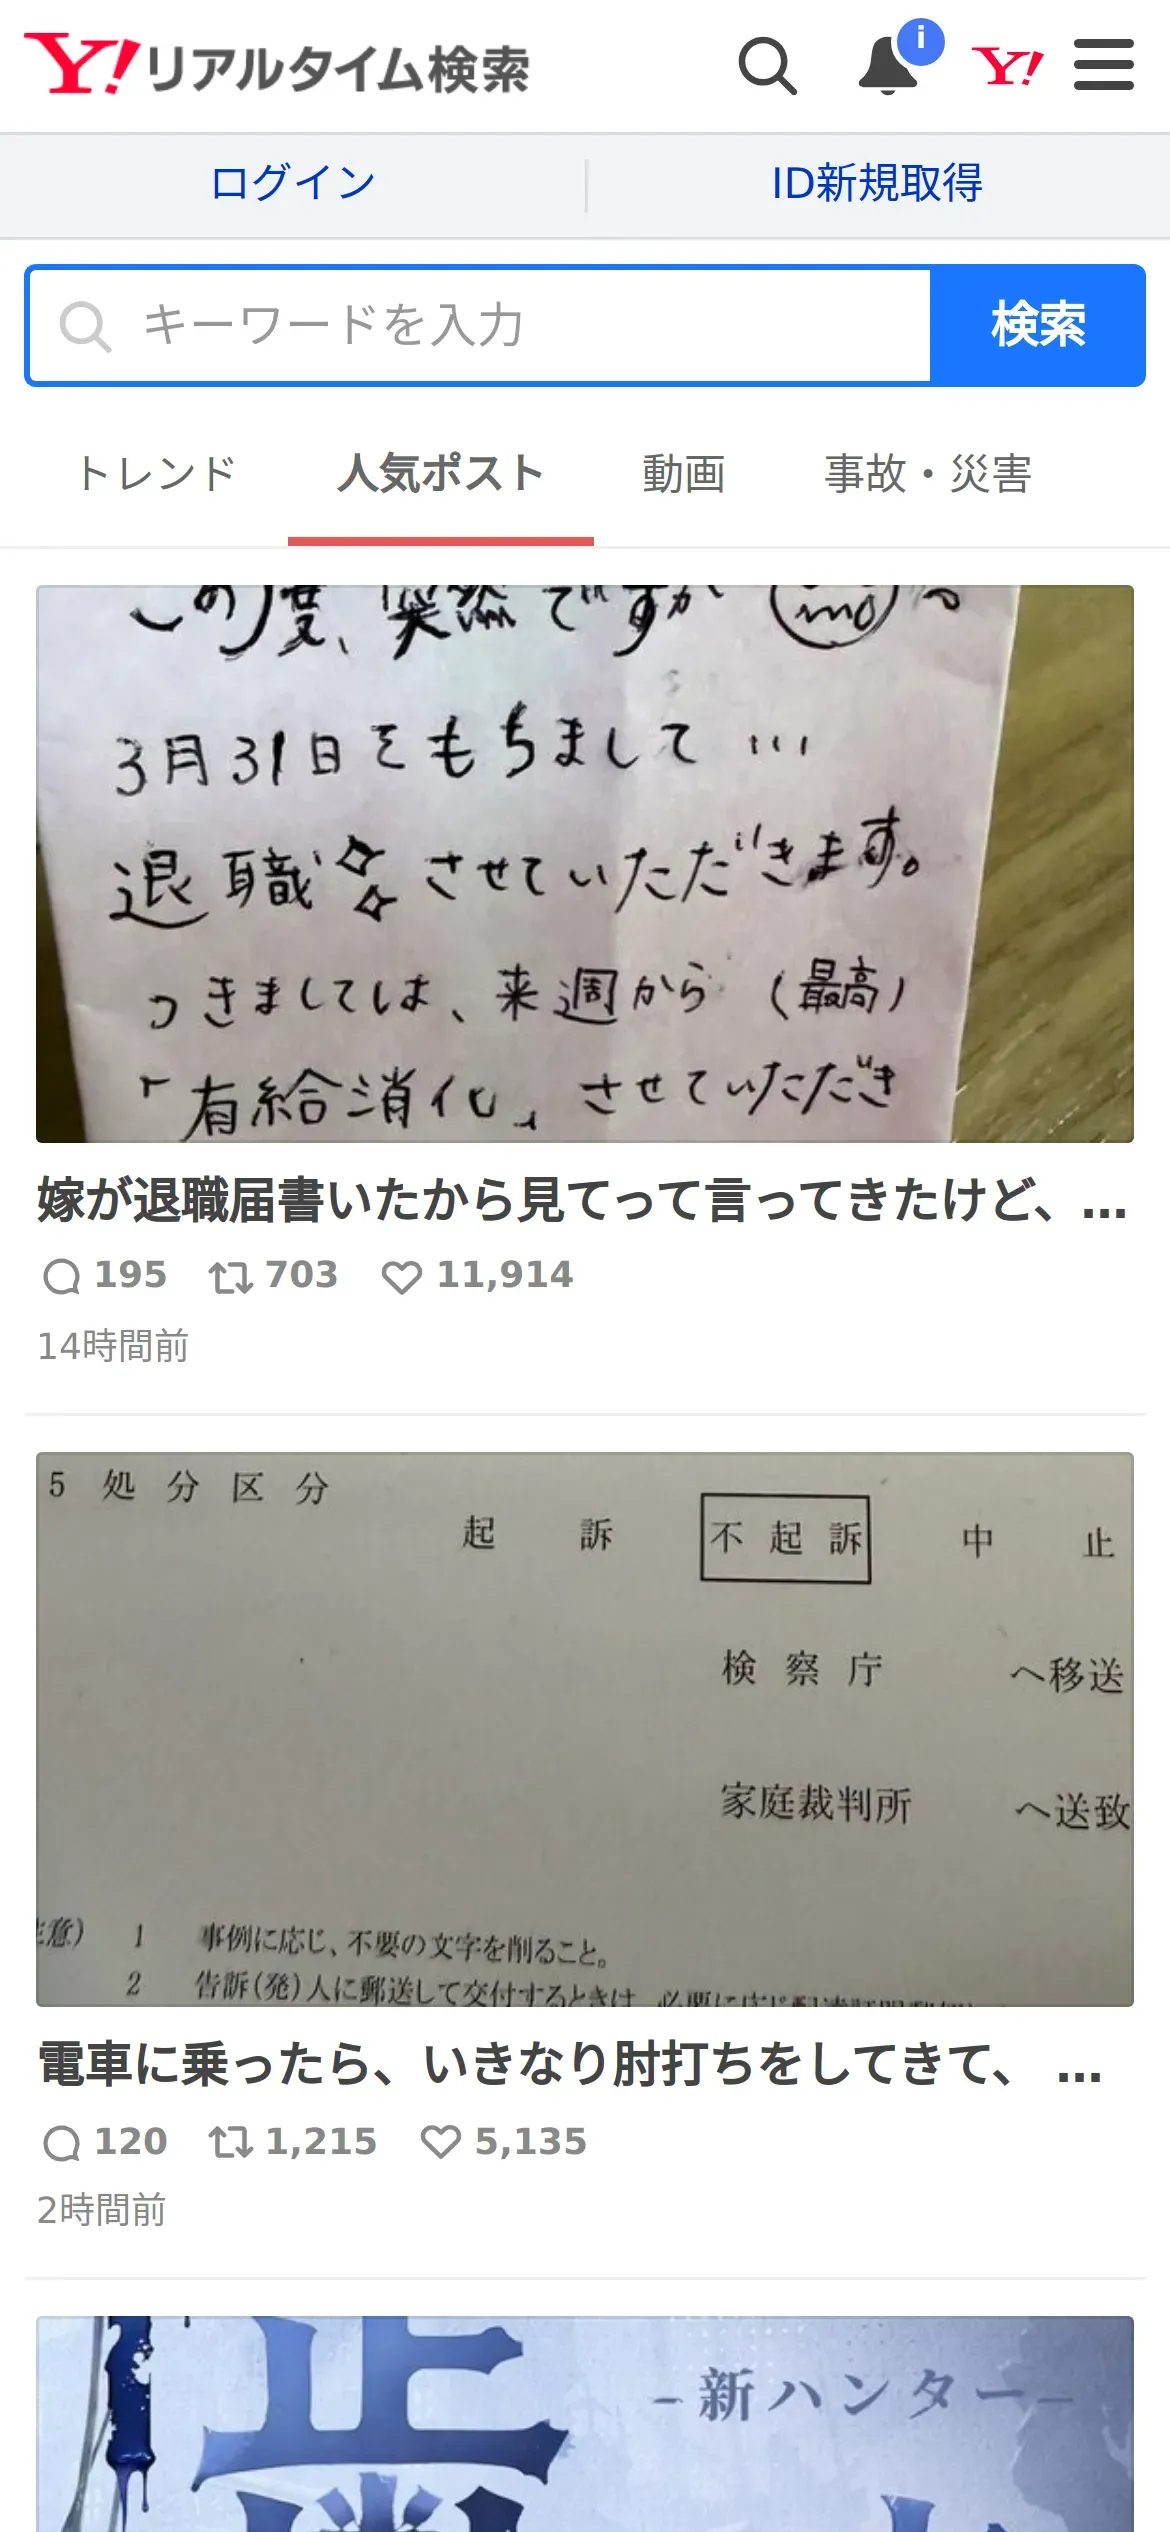 Y!リアルタイム検索
i
Y!
ログイン
ID新規取得
キーワードを入力
検索
トレンド
人気ポスト
動画
事故・災害
この度、突然ですが
3月31日をもちまして…
退職 させていただきます。
つきましては、来週から（最高）
「有給消化」させていただき
嫁が退職届書いたから見てって言ってきたけど、…
195 703 11,914
14時間前
5 処分区分
起訴 不起訴 中止
検察庁 へ移送
家庭裁判所 へ送致
意） 1 事例に応じ、不要の文字を削ること。
2 告訴（発）人に郵送して交付するときは、必要に応じ
電車に乗ったら、いきなり肘打ちをしてきて、 …
120 1,215 5,135
2時間前
－新ハンター－